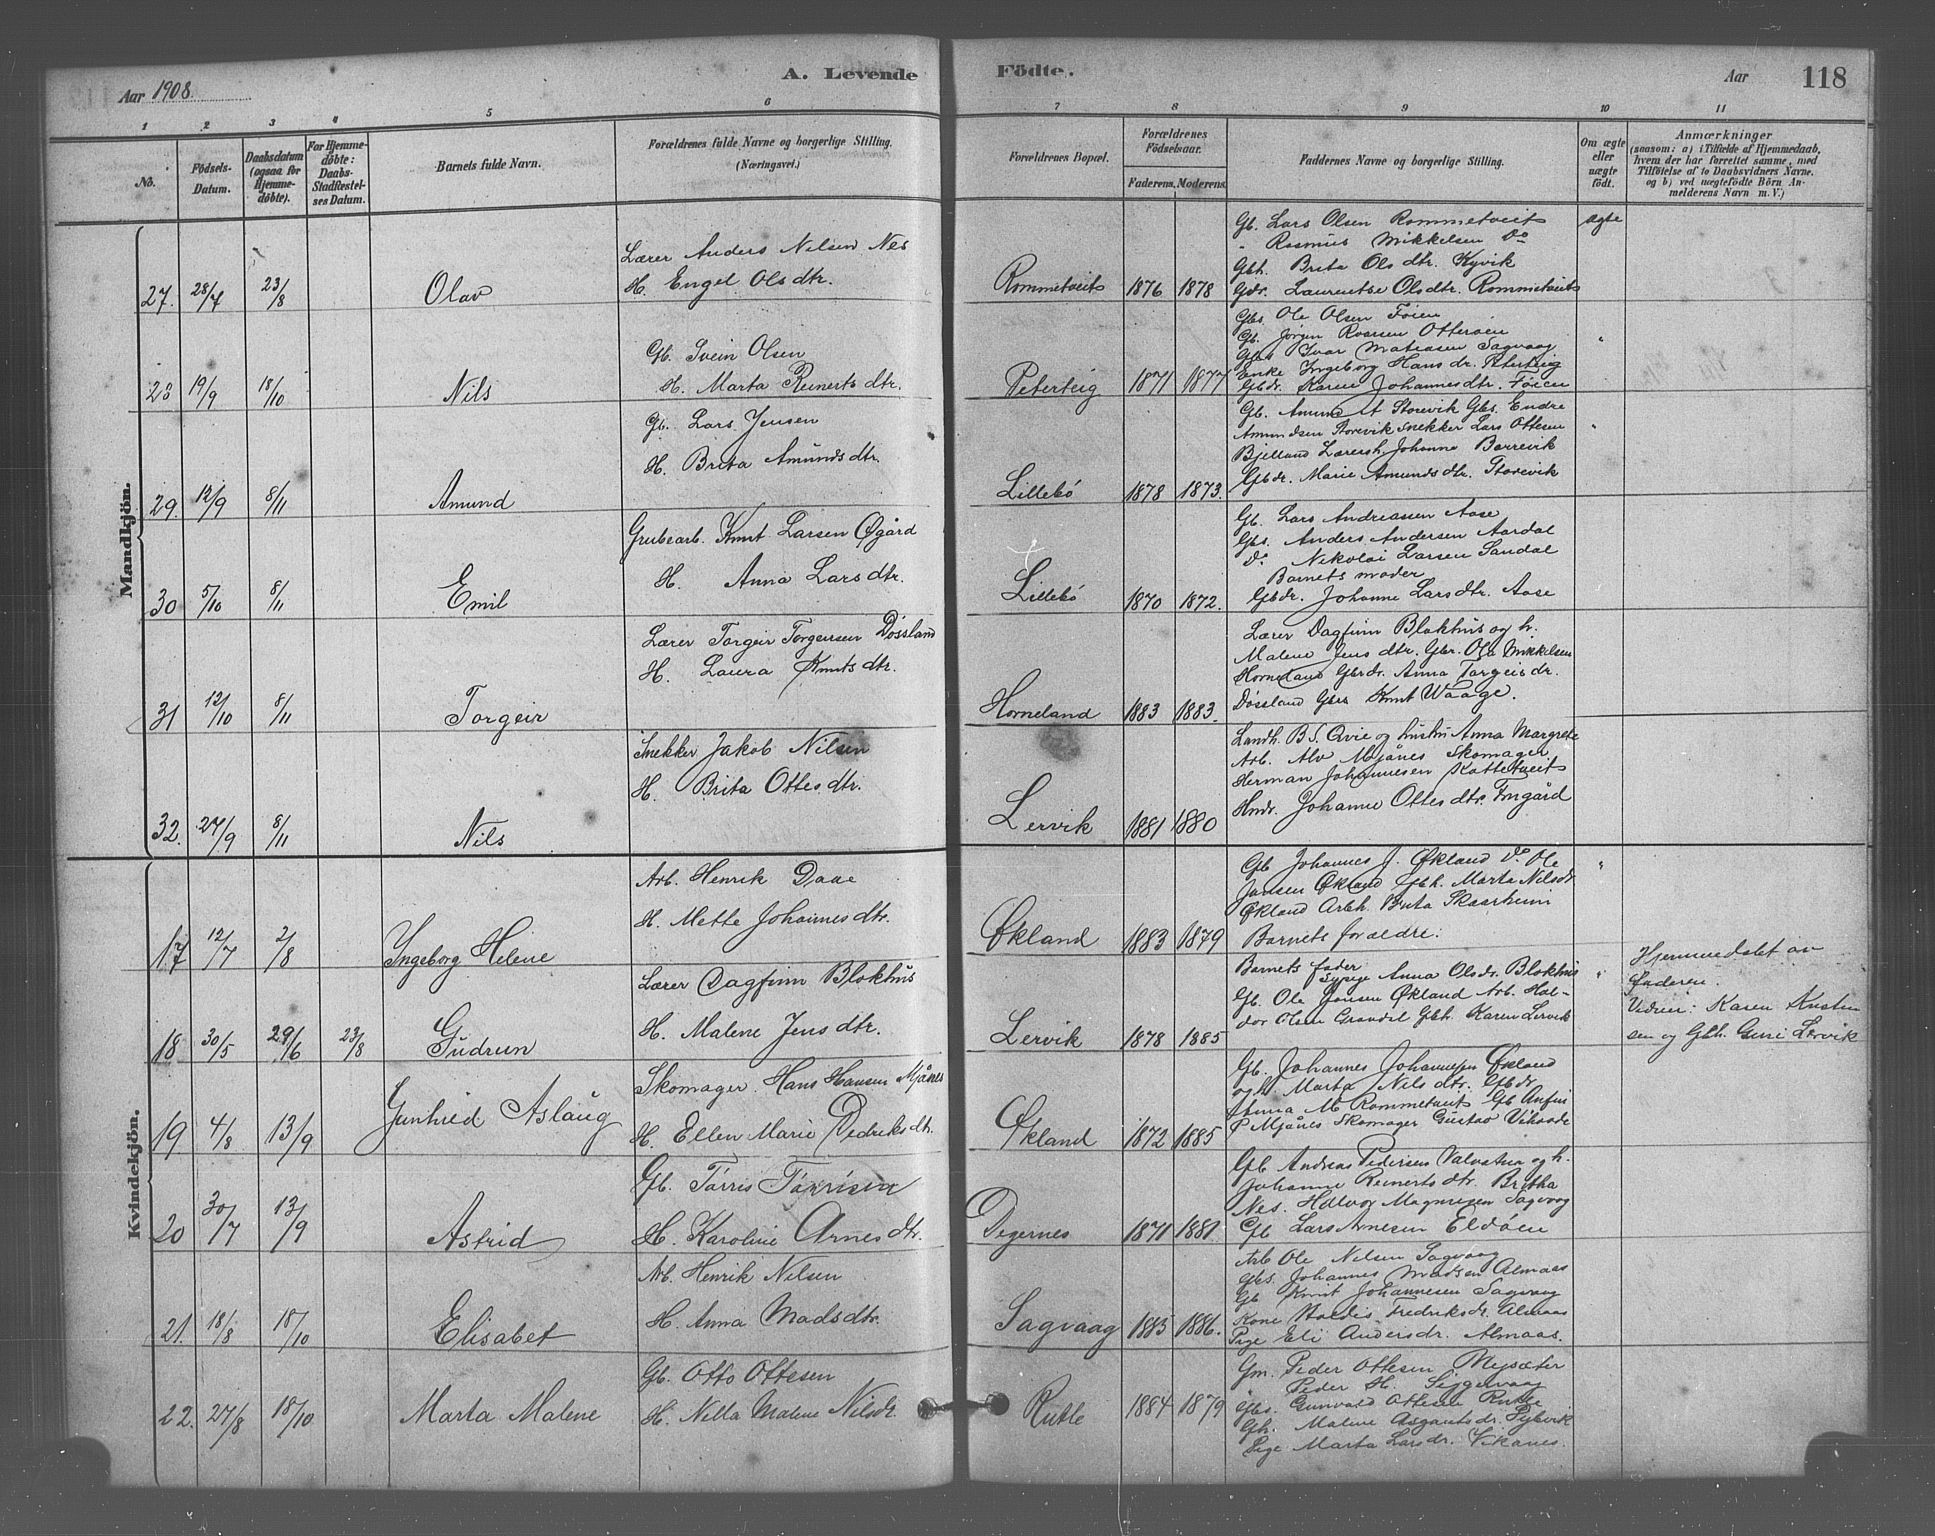 Aar 1908.
A. Levende
Födte.
Aar
118
1 2 3 4 5 6 7 8 9 10 11
No.
Födsels-Datum.
Daabsdatum (ogsaa for Hjemmedöbte).
For Hjemmedöbte: Daabs-Stadfæstelses Datum.
Barnets fulde Navn.
Forældrenes fulde Navne og borgerlige Stilling. (Næringsvei.)
Forældrenes Bopæl.
Forældrenes Födselsaar.
Faderens. Moderens.
Faddernes Navne og borgerlige Stilling.
Om ægte eller uægte födt.
Anmærkninger
(saasom: a) i Tilfælde af Hjemmedaab, hvem der har forrettet samme, med Tilföielse af to Daabsvidners Navne. og b) ved uægtefödte Börn Anmelderens Navn m. V.)
Mandkjön.
27. 28/7 23/8 Olav
Lærer Anders Nilsen Nes
H. Engel Olsdtr.
Rommetveit 1876 1878
Gb. Lars Olsen Rommetveit
" Rasmus Mikkelsen Do
Gbh. Brita Olsdtr. Kyvik
Gdr. Laurentse Olsdtr. Rommetveit
ægte
28 19/9 18/10 Nils
Gb. Svein Olsen
H. Marta Reinertsdtr.
Peterteig 1871 1877
Gbs. Ole Olsen Föien
Gb. Jørgen Roarsen Otteroen
Gbs Ivar Matiasen Sagvaag
Enke Ingeborg Hansdr. Peterteig
Gbdr. Karen Johannesdtr. Föien
"
29. 12/9 8/11 Amund
Gb. Lars Jensen
H. Brita Amundsdtr.
Lillebö 1878 1873.
Gb. Amund A Storevik Gbs. Endre
Amundsen Storevik Snekker Lars Ottesen
Bjelland Lærerh. Johanna Borrevik
Gbdr. Marie Amundsdtr. Storevik
"
30 5/10 8/11 Emil
Grubearb. Knut Larsen Øgård
H. Anna Larsdtr.
Lillebö 1870 1872.
Gb. Lars Andreassen Aase
Gbs. Anders Andersen Aardal
Do Nikolai Larsen Sandal
Barnets moder
Gbdr. Johanne Larsdtr. Aase
31 12/10 8/11 Torgeir
Lærer Torgeir Torgersen Døssland
H. Laura Knutsdtr.
Horneland 1883 1883.
Lærer Dagfinn Blokhus og h.
Malene Jensdtr. Gbr. Ola Mikkelsen
Horneland Gbrdr. Anna Torgeisdr.
Døssland Gbs Knut Waage.
32. 27/9 8/11 Nils
Snekker Jakob Nilsen
H. Brita Ottesdtr.
Lervik 1881 1880
Landh. B S. Qvie og hustru Anna Margrete
Arb. Alv Mjånes Skomager
Herman Johannesen Kattetveit
Hmdr. Johanne Ottesdtr. Imgård
Kvindekjön.
17 12/7 2/8 Ingeborg Helene
Arb. Henrik Daae
H. Mette Johannesdtr.
Økland 1883 1879
Gb Johannes J. Økland Do Ole
Jansen Økland Gbh. Marta Nilsdr
Økland Arbh. Brita Skaarheim
Barnets forældre.
"
18 30/5 29/6 23/8 Gudrun
Lærer Dagfinn Blokhus
H. Malene Jensdtr.
Lervik 1878 1885
Barnets fader
Sypige Anna Olsdr. Blokhus
Gb. Ole Jansen Økland Arb. Hal-
dor Olsen Gravdal Gbh. Karen Lervik
"
Hjemmedøbt av
faderen.
Vidner: Karen Knutsen
sen og Gbh. Guri Lervik
19 4/8 13/9 Gunhild Aslaug
Skomager. Hans Hansen Mjånes
H. Ellen Marie Dedriksdtr.
Økland 1872 1885
Gb. Johannes Johannesen Økland
og h. Marta Nilsdtr. Gbdr.
Anna M Rommetveit Gb Anfin
P Mjånes Skomager Gustav Vihovde
20 30/7 13/9 Astrid
Gb. Tørris Tørrisen
H. Karoline Arnesdtr.
Degernes 1871 1881
Gb Andreas Pedersen Valvatna og h.
Johanne Reinertsdtr. Britha
Nes. Halvor Magnesen Sagvaag
Gb Lars Arnesen Eldöen
21. 18/8 18/10 Elisabet
Arb. Henrik Nilsen
H. Anna Madsdtr.
Sagvaag 1885 1886.
Arb Ole Nilsen Sagvaag
Gbs. Johannes Madsen Almaas
Gb Knut Johannesen Sagvaag
Kone Fredriksdr. Almaas
Pige Eli Andersdr. Almaas.
22. 27/8 18/10 Marta Malene
Gb. Otto Ottesen
H. Nella Malene Nilsdr.
Rutle 1884 1879
Gm. Peder Ottesen Mesæter
Peder H. Siggervaag
Gbs. Gunvald Ottesen Rutle
Gh. Malene Asgautsdr.
Pige Marta Larsdr. Vikanes.